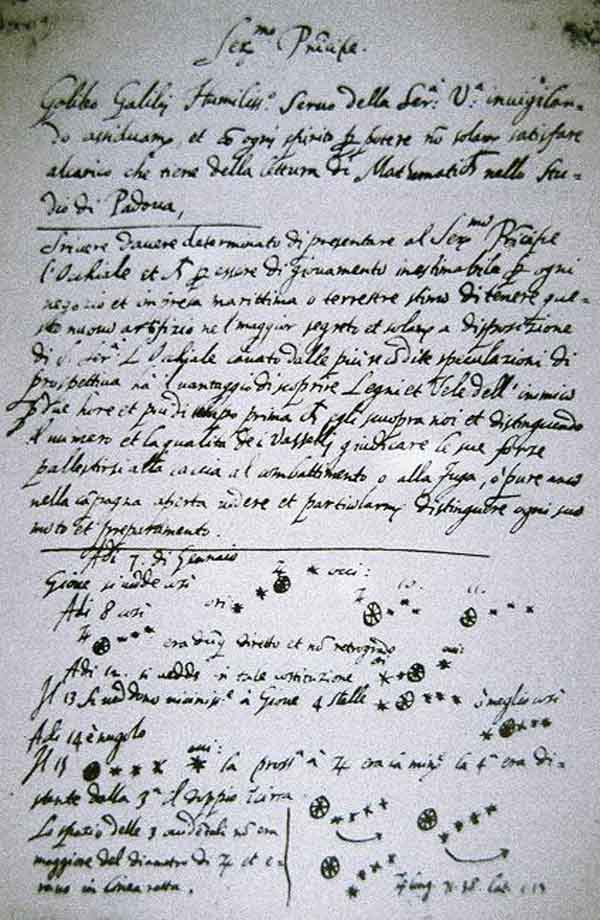 Ser.mo Prĩcipe.
Galileo Galilei Humiliss.o Servo della Ser.a V.a invigilan-
do assiduam.e, et cõ ogni spirito p potere nõ solam.e satisfare
alcarico che tiene della lettura di Mathematich.e nello Stu-
dio di Padova,
Scrivere d'avere determinato di presentare al Ser.mo Prĩcipe
l'Occhiale et p essere di giovamento inestimabile p ogni
negozio et impresa marittima o terrestre stimo di tenere que-
sto nuovo artifizio nel maggior segreto et solam.e a disposizione
di S. Ser.a L'Occhiale cavato dalle più recõdite speculazioni di
prospettiva ha il vantaggio di scoprire Legni et Vele dell'inimico
p due hore et più di tempo prima ch egli scuopra noi et distinguendo
il numero et la qualità de i Vasselli giudicare le sue forze
pallestirsi alla caccia al combattimento o alla fuga, o pure anco
nella cãpagna aperta vedere et particolarm.e distinguere ogni suo
moto et preparamento.
Adì 7. di Gennaio
Gione si vedde così ♃ occi:
Adì 8 così ori: ♃ 10. 11.
♃ era dũq diretto et nõ retrogrado
Adì 12. si vedde in tale costituzione
Il 13 si veddono vicinis.e à Giove 4 stelle è meglio così
Adì 14 è nugolo
Il 15 la pross.a à ♃ era la min.e la 4.a era di-
stante dalla 3.a il doppio
Lo spazio delle 3 occidetali nõ era
maggiore del diametro di ♃ et e-
rano in linea retta.
♃ long. 71.38 Lat. 1.13